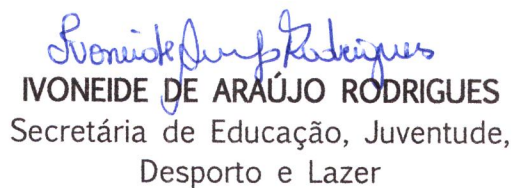 Ivoneide Araújo Rodrigues
IVONEIDE DE ARAÚJO RODRIGUES
Secretária de Educação, Juventude,
Desporto e Lazer